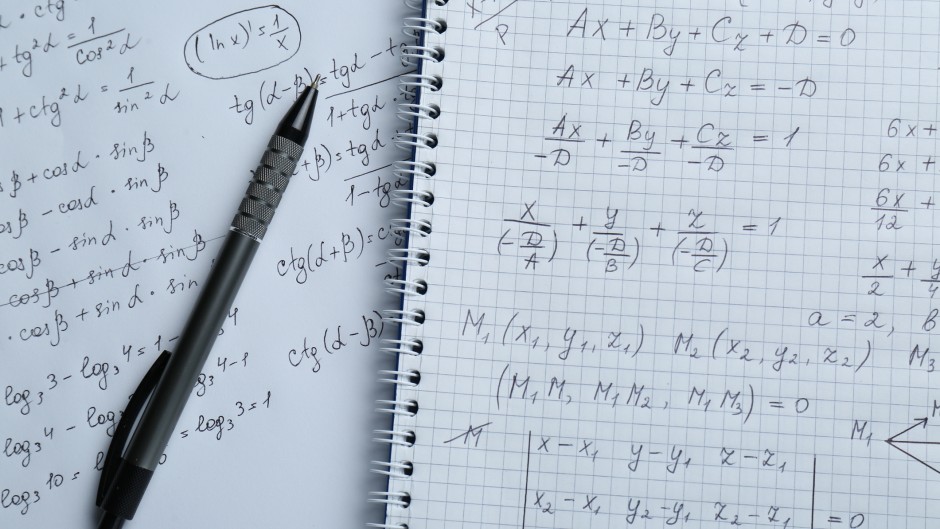 + tg²α = 1/cos²α
1 + ctg²α = 1/sin²α
(ln x)' = 1/x
tg(α-β) = tgα - tg
1 + tgα ·
+β) = tgα ·
1 - tgα
β + cosα · sinβ
cosβ - cosα · sinβ
cosβ - sinα · sinβ
cosβ + sinα · sinβ
· cosβ + sinα · sin
ctg(α+β) = c
ctg(α-β)
log₃ 3 - log₃ 4 = 1 -
log₃ 4 - log
4 - 1
log₃ 10 =
= log₃ 3 = 1
Ax + By + Cz + D = 0
Ax + By + Cz = -D
Ax/-D + By/-D + Cz/-D = 1
x/(-D/A) + y/(-D/B) + z/(-D/C) = 1
6x +
6x +
6x/12 +
x/2 + y/4
a = 2, B
M₁(x₁, y₁, z₁) M₂(x₂, y₂, z₂) M₃
(M₁M, M₁M₂, M₁M₃) = 0
M₁
M
| x - x₁ y - y₁ z - z₁ |
| x₂ - x₁ y₂ - y₁ z₂ - z₁ | = 0